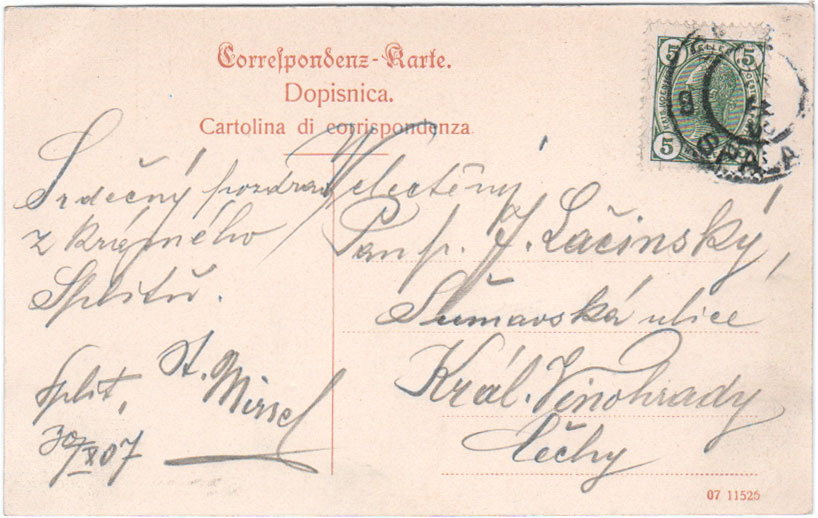 Correspondenz-Karte.
Dopisnica.
Cartolina di corrispondenza
5 HELLER 5
5
SPALA
Srdečný pozdrav
z krásného
Splitu.
St. Mirsel
Split,
30/X 07
Velectěný
Pan p. J. Lačinský,
Šumavská ulice
Král. Vinohrady
Čechy
07 11525